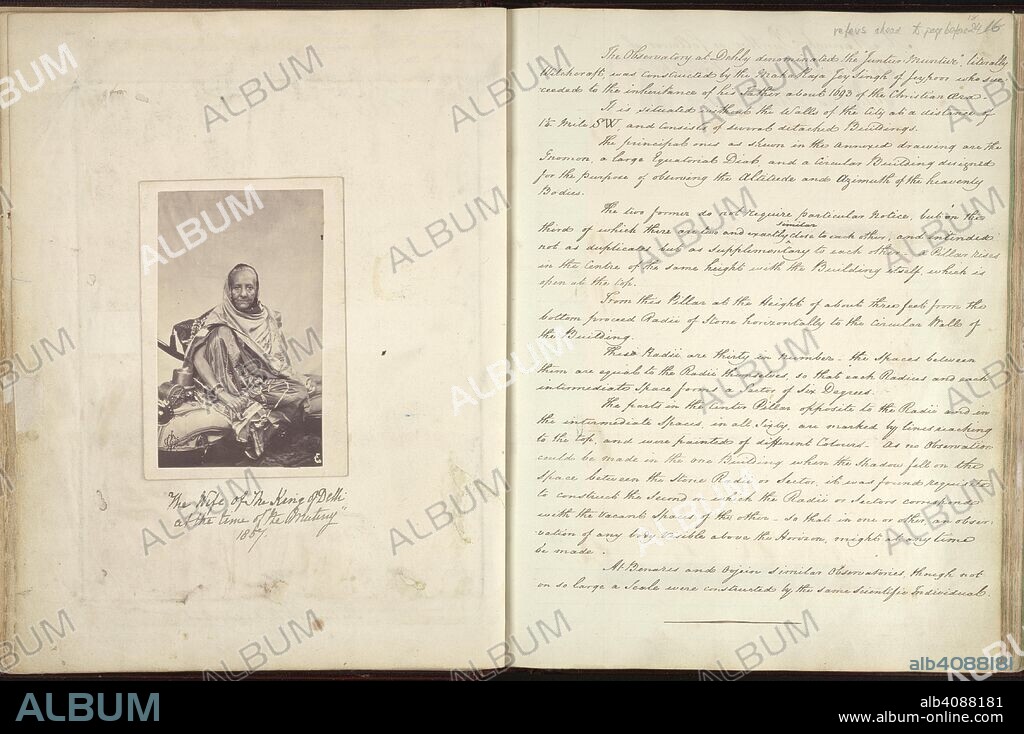 "The Wife of The King of Delhi
at the time of the Mutiny"
1857
refers ahead to page before 24
16
The Observatory at Dehly denominated the "Junter Muntur", literally
Witchcraft, was constructed by the Maha Raja Jey Singh of Jeypoor who suc-
ceeded to the inheritance of his Father about 1693 of the Christian Æra.
It is situated without the Walls of the City at a distance of
1½ Mile S.W. and consists of several detached Buildings.
The principal ones as shewn in the annexed drawing are the
Gnomon, a large Equatorial Dial, and a Circular Building designed
for the purpose of observing the Altitude and Azimuth of the heavenly
Bodies.
The two former do not require particular Notice, but in the
third of which there are two and exactly similar close to each other, and intended
not as duplicates but as supplementary to each other, a Pillar rises
in the Centre of the same height with the Building itself, which is
open at the top.
From this Pillar at the Height of about three feet from the
bottom proceed Radii of Stone horizontally to the Circular Wall of
the Building.
These Radii are thirty in number - the Spaces between
them are equal to the Radii themselves, so that each Radius and each
intermediate Space forms a Sector of Six Degrees.
The parts in the center Pillar opposite to the Radii and in
the intermediate Spaces, in all Sixty, are marked by lines reaching
to the top, and were painted of different Colours. As no Observation
could be made in the one Building when the Shadow fell on the
Space between the Stone Radii or Sector, it was found requisite
to construct the Second in which the Radii or Sectors correspond
with the vacant Spaces of the other - so that in one or other an obser-
vation of any body visible above the Horizon, might at any time
be made.
At Benares and Oojein similar Observatories, though not
on so large a Scale were constructed by the same scientific Individual.
ALBUM
alb4088181
ALBUM
alb4088181
www.album-online.com